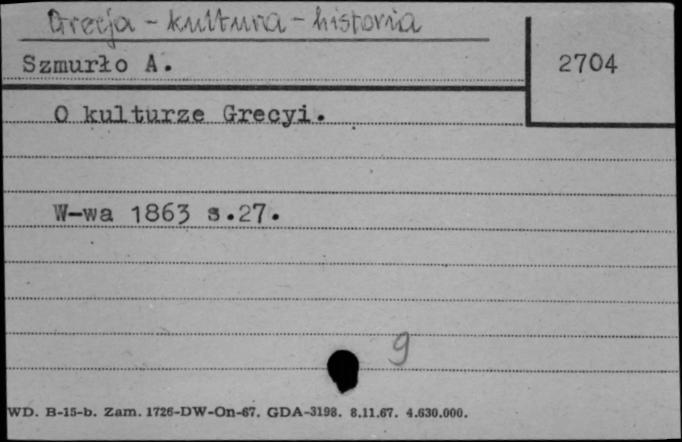 Grecja - kultura - historia
Szmurło A.
2704
O kulturze Grecyi.
W-wa 1863 s.27.
9
WD. B-15-b. Zam. 1726-DW-On-67. GDA-3198. 8.11.67. 4.630.000.